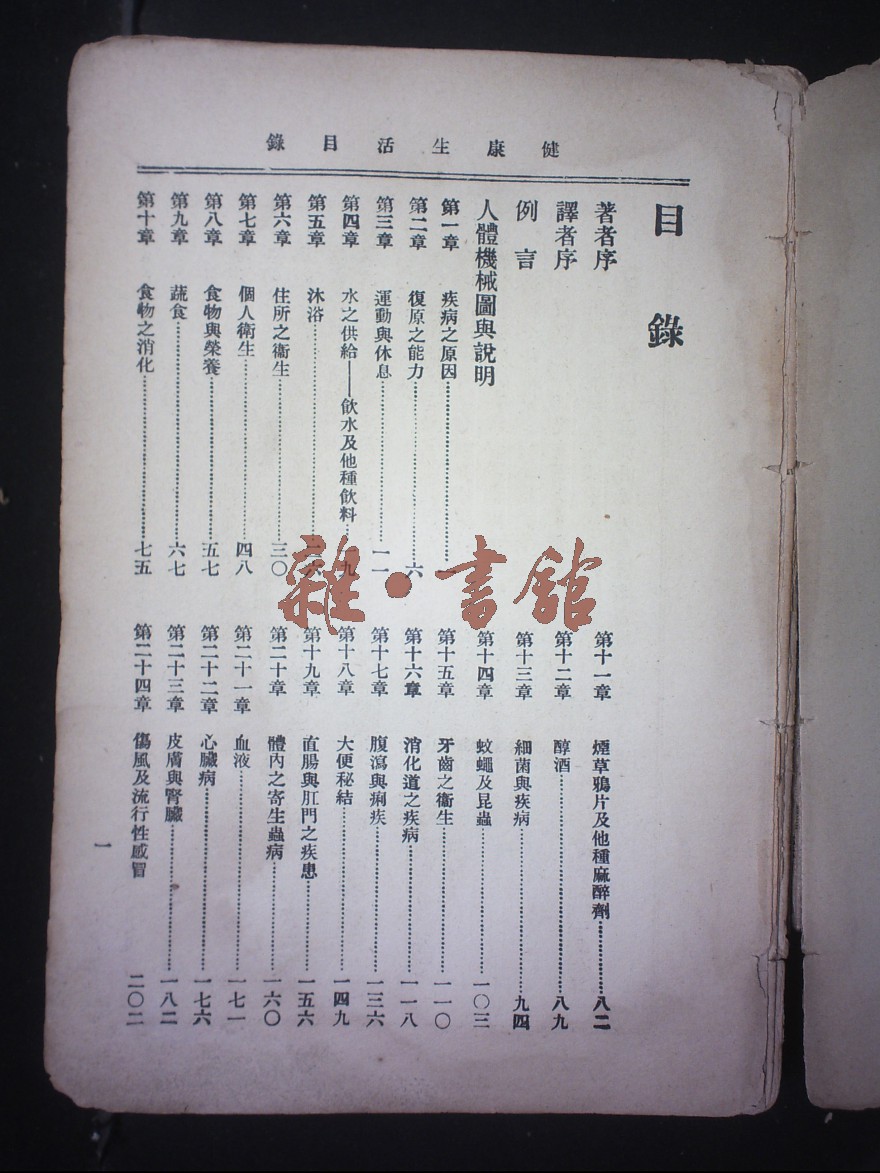 健康生活目錄
目錄
著者序
譯者序
例言
人體機械圖與說明
第一章 疾病之原因
第二章 復原之能力 六
第三章 運動與休息 一一
第四章 水之供給——飲水及他種飲料 九
第五章 沐浴 六
第六章 住所之衞生 三〇
第七章 個人衞生 四八
第八章 食物與榮養 五七
第九章 蔬食 六七
第十章 食物之消化 七五
第十一章 煙草鴉片及他種麻醉劑 八二
第十二章 醇酒 八九
第十三章 細菌與疾病 九四
第十四章 蚊蠅及昆蟲 一〇三
第十五章 牙齒之衞生 一一〇
第十六章 消化道之疾病 一一八
第十七章 腹瀉與痢疾 一三六
第十八章 大便秘結 一四九
第十九章 直腸與肛門之疾患 一五六
第二十章 體內之寄生蟲病 一六〇
第二十一章 血液 一七一
第二十二章 心臟病 一七六
第二十三章 皮膚與腎臟 一八二
第二十四章 傷風及流行性感冒 二〇二
一
雜·書館